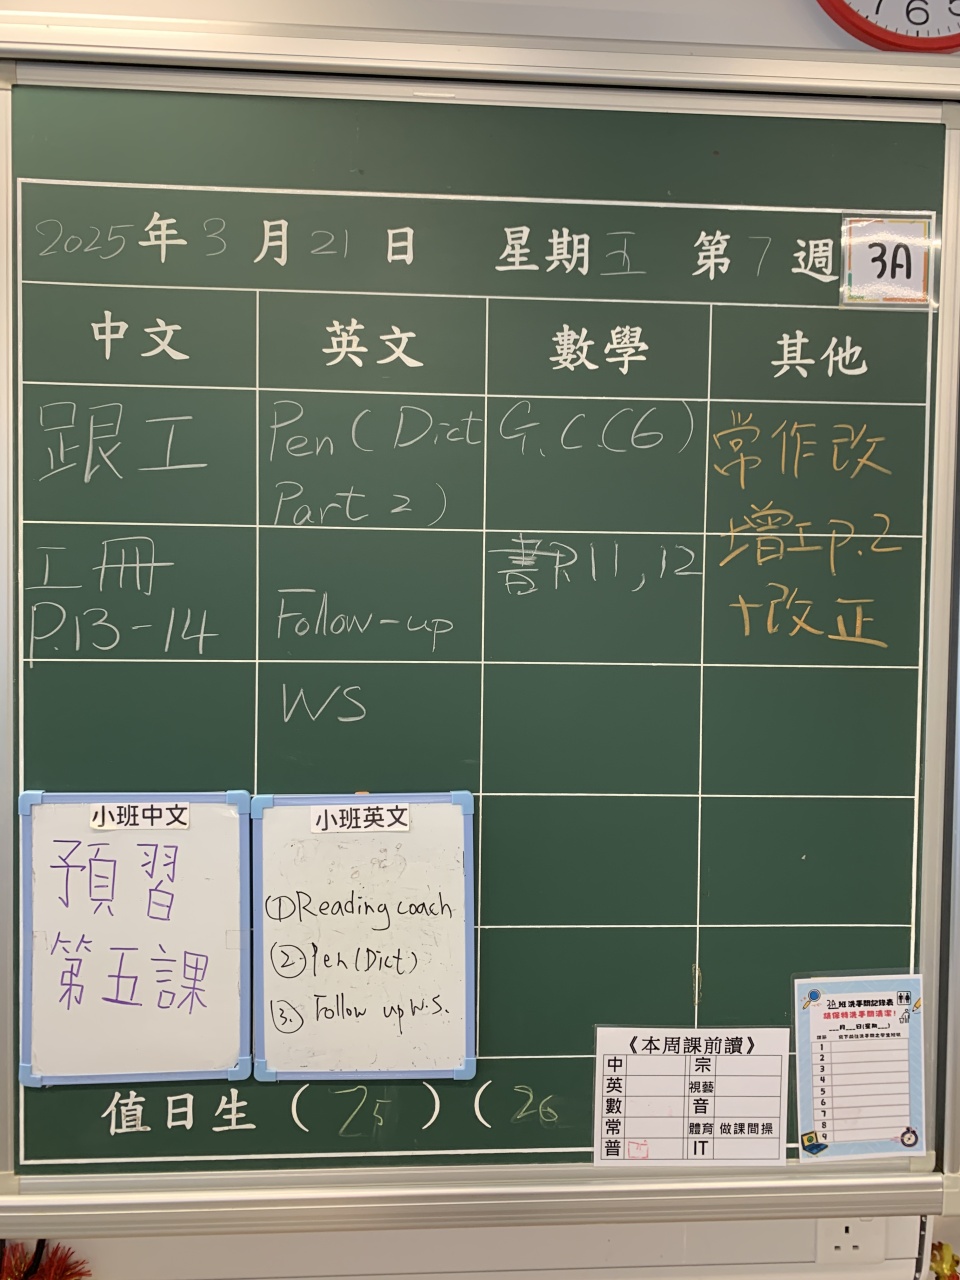 7 6 5
2025年3月21日 星期五 第7週 3A
中文 英文 數學 其他
跟工
工冊
P.13-14
Pen (Dict
Part 2)
Follow-up
WS
G.C.(6)
書P.11,12
常作改
增工p.2
+改正
小班中文
預習
第五課
小班英文
①Reading coach
②Pen (Dict)
③. Follow up W.S.
值日生 (25) (26
《本周課前讀》
中 宗
英 視藝
數 音
常 體育 做課間操
普 IT
3A班洗手間記錄表
請保持洗手間清潔!
___月___日(星期___)
1
2
3
4
5
6
7
8
9